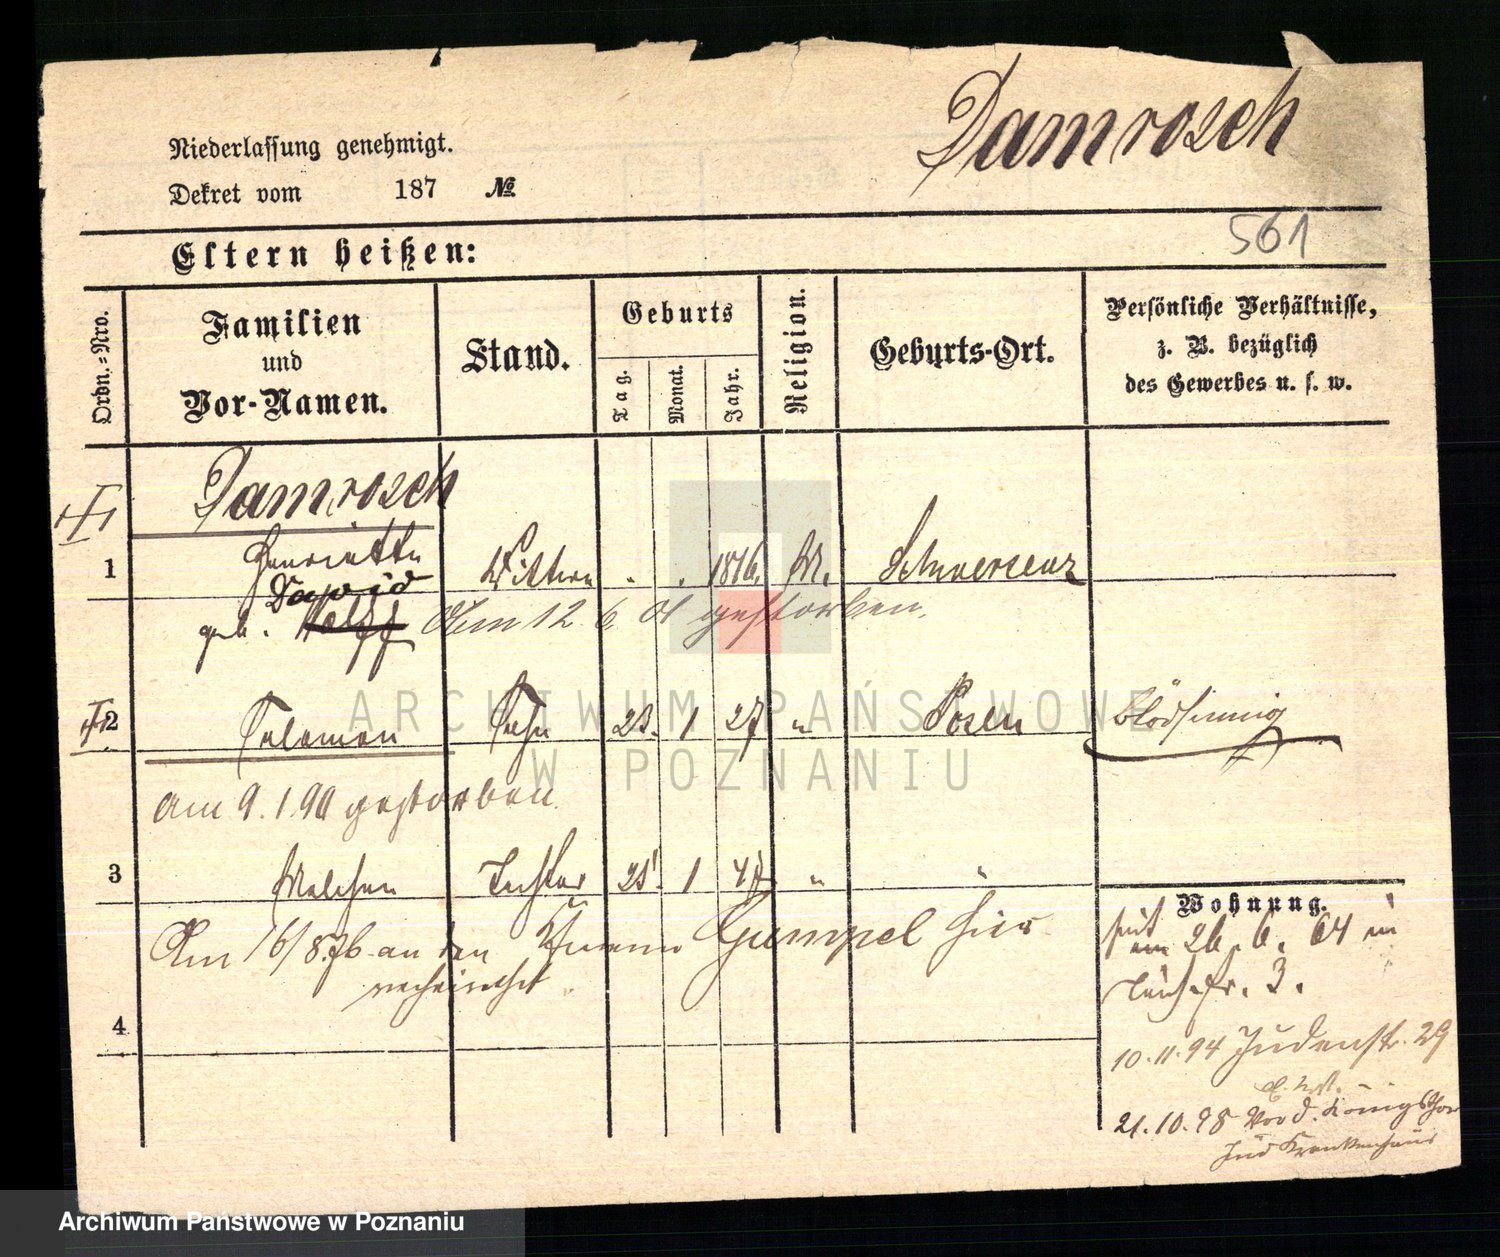 Damrosch
Niederlassung genehmigt.
Dekret vom 187 №
561
Eltern heißen:
Ordn.-Nro.
Familien
und
Vor-Namen.
Stand.
Geburts
Tag.
Monat.
Jahr.
Religion.
Geburts-Ort.
Persönliche Verhältnisse,
z. B. bezüglich
des Gewerbes u. s. w.
Damrosch
1 Henriette Wittwe . . 1816. M. Schwersenz
David
geb. Wolff Am 12. 6. 01 gestorben.
2 Salomon Sohn 23. 1 27 " Posen blödsinnig
am 9.1.90 gestorben.
3 Malchen Tochter 25. 1 47 " "
Am 16/8 76 an den Gumpel hier
verheirathet
4
Wohnung.
seit
am 26. 6. 64 in
Teichstr. 3.
10.11.94 Judenstr. 29
21.10.98 Vor d. Königsthor
Jüd Krankenhaus
ARCHIWUM PAŃSTWOWE
W POZNANIU
Archiwum Państwowe w Poznaniu